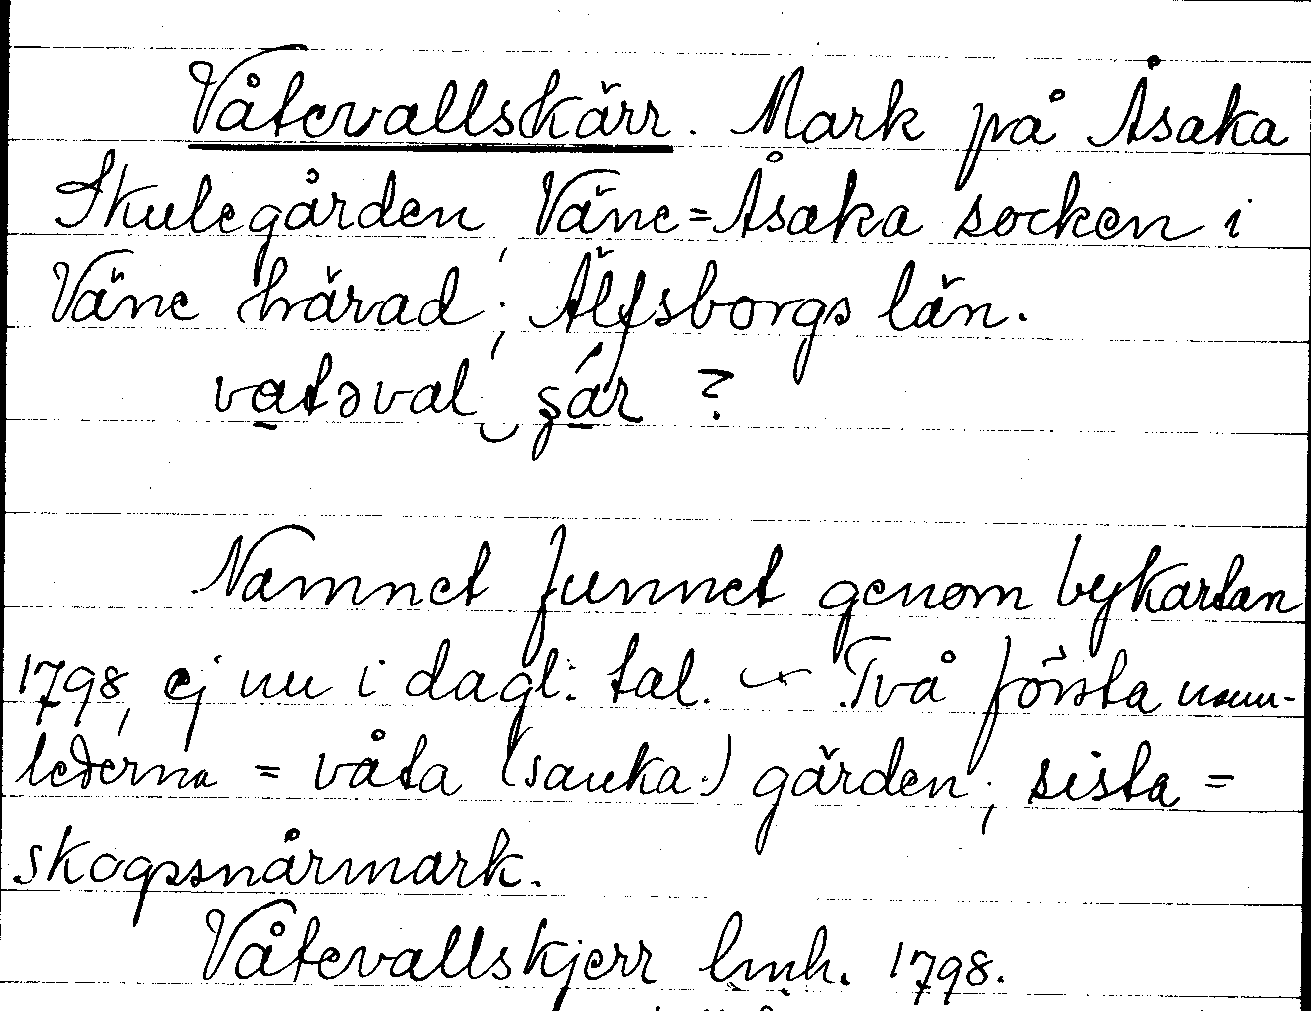 Våtevallskärr. Mark på Åsaka
Skulegården, Väne=Åsaka socken i
Väne härad, Älfsborgs län.
vatəval ʂár ?
Namnet funnet genom bykartan
1798, ej nu i dagl. tal. — Två första namn-
lederna = våta (sanka) gärden; sista =
skogssnårmark.
Våtevallskjerr lmh. 1798.